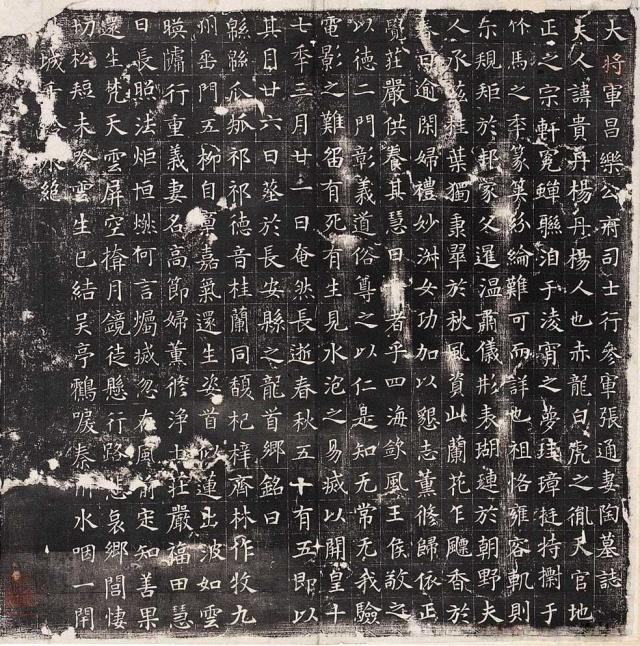 大將軍昌樂公府司士行參軍張通妻陶墓誌
夫人諱貴丹楊丹楊人也赤龍白虎之胤天官地
正之宗軒冕蟬聯洎于凌霄之夢珪璋挺特擲于
竹馬之秊篆筭紛綸難可而詳也祖恪雍容軌則
尒規矩於邦家父暹温肅儀形表瑚璉於朝野夫
人承茲雅葉獨秉翠於秋風資此蘭花乍飄香於
春日逾閑婦禮妙洲女功加以懇志薰修歸依正
覺莊嚴供養其慧日 者乎四海欽風王侯敬之
以德二門彰義道俗尊之以仁是知无常无我驗
電影之難留有死有生見水泡之易滅以開皇十
七秊三月廿一日奄然長逝春秋五十有五即以
其月廿六日葬於長安縣之龍首鄉銘曰
緜緜瓜瓞祁祁德音桂蘭同馥杞梓齊林作牧九
州垂門五柳自 嘉氣還生姿首似蓮出波如雲
暎牖行重義妻名高節婦薰修淨土莊嚴福田慧
日長照法炬恒燃何言燭滅忽在風前定知善果
還生梵天雲屏空掩月鏡徒懸行路 哀鄉閭悽
切松短未 雲生已結吴亭鶴唳秦川水咽一閇
城 絶